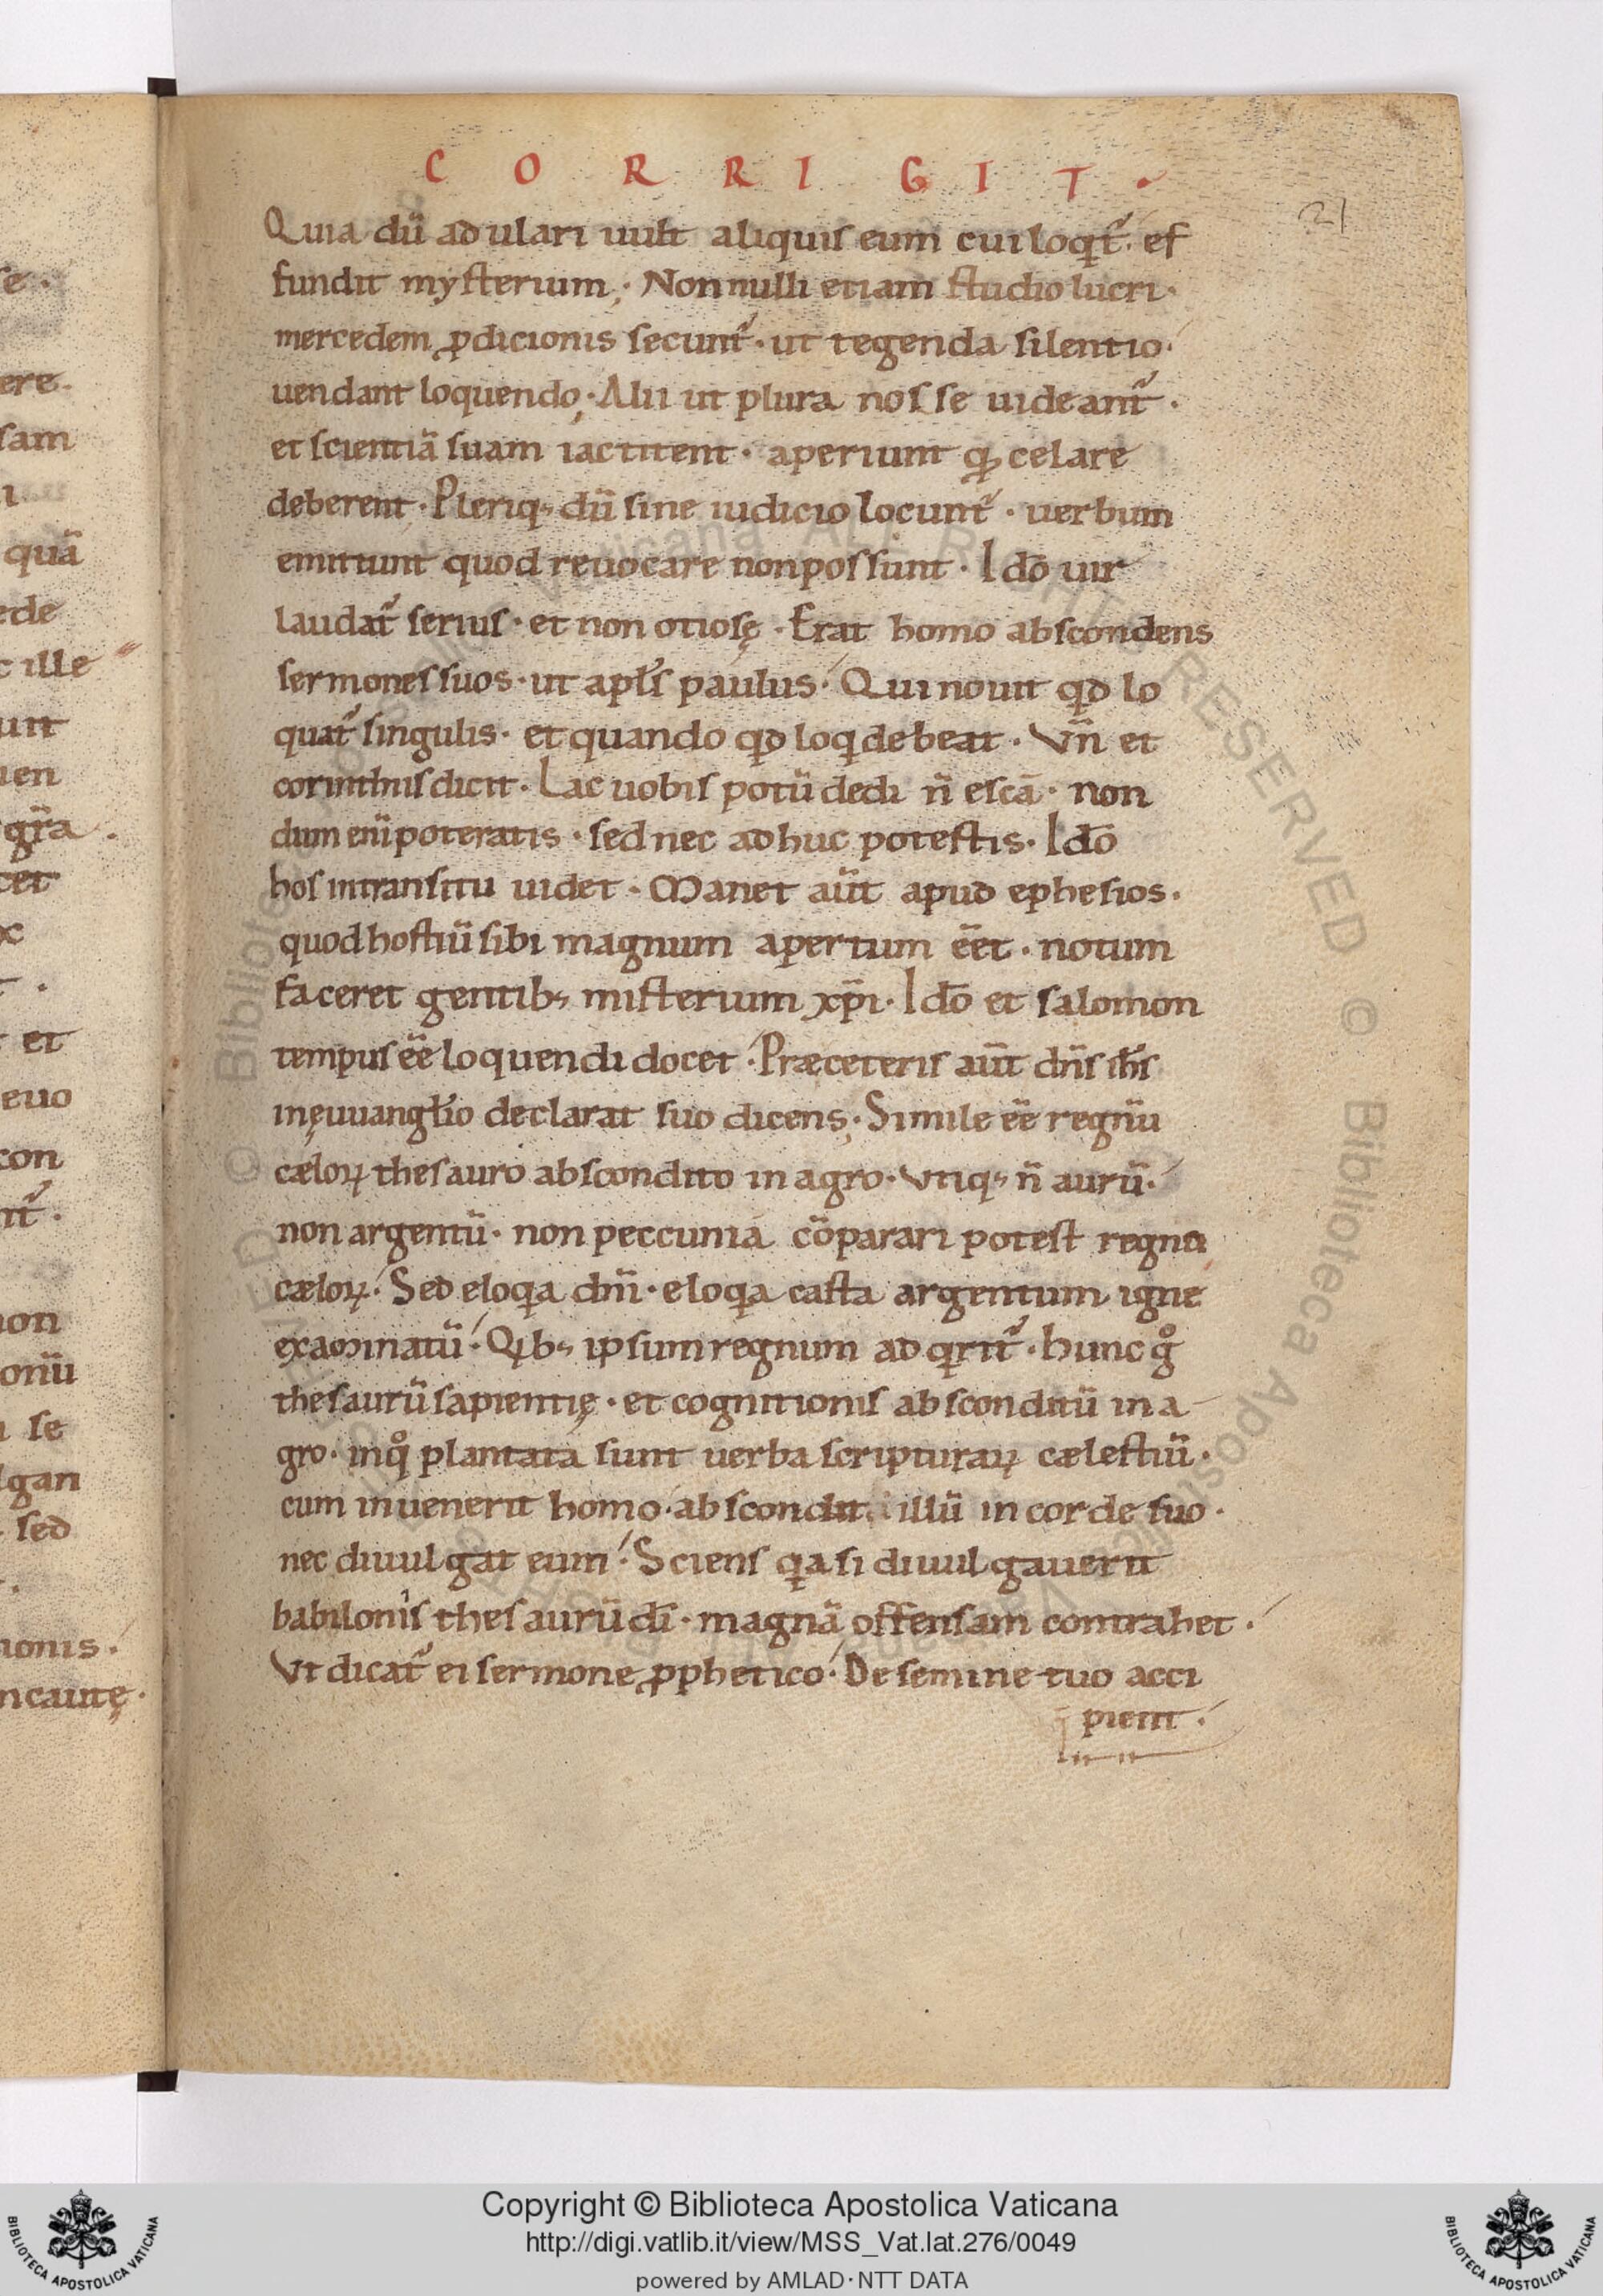 C O R R I G I T .
21
Quia dũ adulari uult aliquis eum cui loqt᷑. ef
fundit mysterium; Nonnulli etiam studio lucri.
mercedem ꝓdicionis secunt᷑. ut tegenda silentio.
uendant loquendo; Alii ut plura nosse uideant᷑.
et scientiã suam iactitent. aperiunt qđ celare
deberent. Pleriq; dũ sine iudicio locunt᷑. uerbum
emittunt quod reuocare non possunt. Idõ uir
laudat᷑ serius. et non otiosę. Erat homo abscondens
sermones suos. ut apłs paulus. Qui nouit qd lo
quat᷑ singulis. et quando qd loq debeat. Vñ et
corinthiis dicit. Lac uobis potũ dedi ñ escã. non
dum enĩ poteratis. sed nec adhuc potestis. Idõ
hos in transitu uidet. Manet aũt apud ephesios.
quod hostiũ sibi magnum apertum eẽt. notum
faceret gentib; misterium xp̃i. Idõ et salomon
tempus eẽ loquendi docet. Præ ceteris aũt dñs ih̃s
in ęuuangłio declarat suo dicens; Simile eẽ regnũ
cæloꝝ thesauro abscondito in agro. Vtiq; ñ aurũ.
non argentũ. non peccunia cõparari potest regna
cæloꝝ. Sed eloqa dñi. eloqa casta argentum igne
examinatũ. Qib; ipsum regnum ad qrit᷑. hunc g̊
thesaurũ sapientię. et cognitionis absconditũ in a
gro. in q̊ plantata sunt uerba scripturaꝝ cælestiũ.
cum inuenerit homo. abscondit illũ in corde suo.
nec diuulgat eum. Sciens qa si diuulgauerit
babilonis thesaurũ dĩ. magnã offensam contrahet.
Vt dicat᷑ ei sermone ꝓphetico. De semine tuo acci
pient.
Copyright © Biblioteca Apostolica Vaticana
http://digi.vatlib.it/view/MSS_Vat.lat.276/0049
powered by AMLAD·NTT DATA
BIBLIOTECA APOSTOLICA VATICANA
BIBLIOTECA APOSTOLICA VATICANA